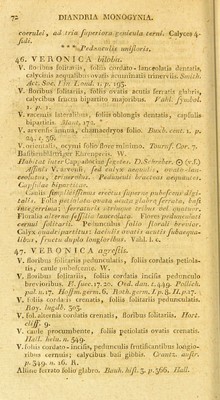 72 DIANDRIA MONOGYNIA.
coerulei, ad tria superiora genicula terni. Calyces 4-
fidi.
*** Pedunculis unifloris.
46. VERONICA biloba.
V. floribus solitariis, foliis cordato-lanceolatis dentatis,
calycinis sequalibus ovatis acuminatis trinerviis. Smith.
Act. Soc. Linn. Lond. 1. p. 195.
V. floribus solitariis, foliis ovatis acutis serratis glabris,
calycibus fructus bipartito majoribus. Vahl. symbol.
1. p. 1.
V. racemis lateralibus, foliis oblongis dentatis, capsulis
bipartitis. Mant. 172.
V. arvensis annua, chamaedryos folio. Buxb. cent. 1. p.
24. t. 36.
V. orientalis, ocymi folio flore minimo. Touref. Cor. 7.
Zweilappiger Ehrenpreis. W.
Habitat inter Cappadociae segetes. D. Schreber. ☉ (v.s.)
Affinis V. arvensi, sed calyx acutus, ovato-lan-
ceolatus, trinervius. Pedunculi bracteas aequantes.
Capsulae bipartitae.
Caulis erectus superne pubescens digi-
talis. Folia petiolata ovata acuta glabra serrata, basi
integerrima: serraturis utrinque tribus vel quatuor.
Floralia alterna sessilia lanceolata. Flores pedunculati
cernui solitarii. Pedunculus folio florali brevior.
Calyx quadripartitus: laciniis ovatis acutis subaequa-
libus, fructu duplo longioribus. Vahl. l. c.
47. VERONICA agrestis.
V. floribus solitariis pedunculatis, foliis cordatis petiola-
tis, caule pubescente. W.
V. floribus solitariis, foliis cordatis incisis pedunculo
brevioribus. Fl. suec. 17. 20. Oed. dan. t. 449. Pollich.
pal. n. 17. Hoffm. germ. 6. Roth. germ. I p. 8. II. p. 17.
V. foliis cordatis crenatis, foliis solitariis pedunculatis.
Roy. lugdb. 303.
V. fol. alternis cordatis crenatis, floribus solitariis. Hort.
cliff. 9.
V. caule procumbente, foliis petiolatis ovatis crenatis.
Hall. helv. n. 549.
V. foliis cordato-incisis, pedunculis fructificantibus longio-
ribus cernuis; calycibus basi gibbis. Crantz. austr.
p. 349. n. 16. R.
Alsine serrato folio glabro. Bauh. hist. 3. p. 366. Hall.